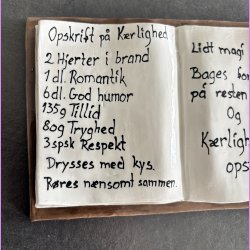 Opskrift på Kærlighed
2 Hjerter i brand
1 dl. Romantik
6 dl. God humor
135g Tillid
80g Tryghed
3 spsk Respekt
Drysses med kys.
Røres nænsomt sammen.
Lidt magi
Bages
på resten
Og
Kærligh
ops